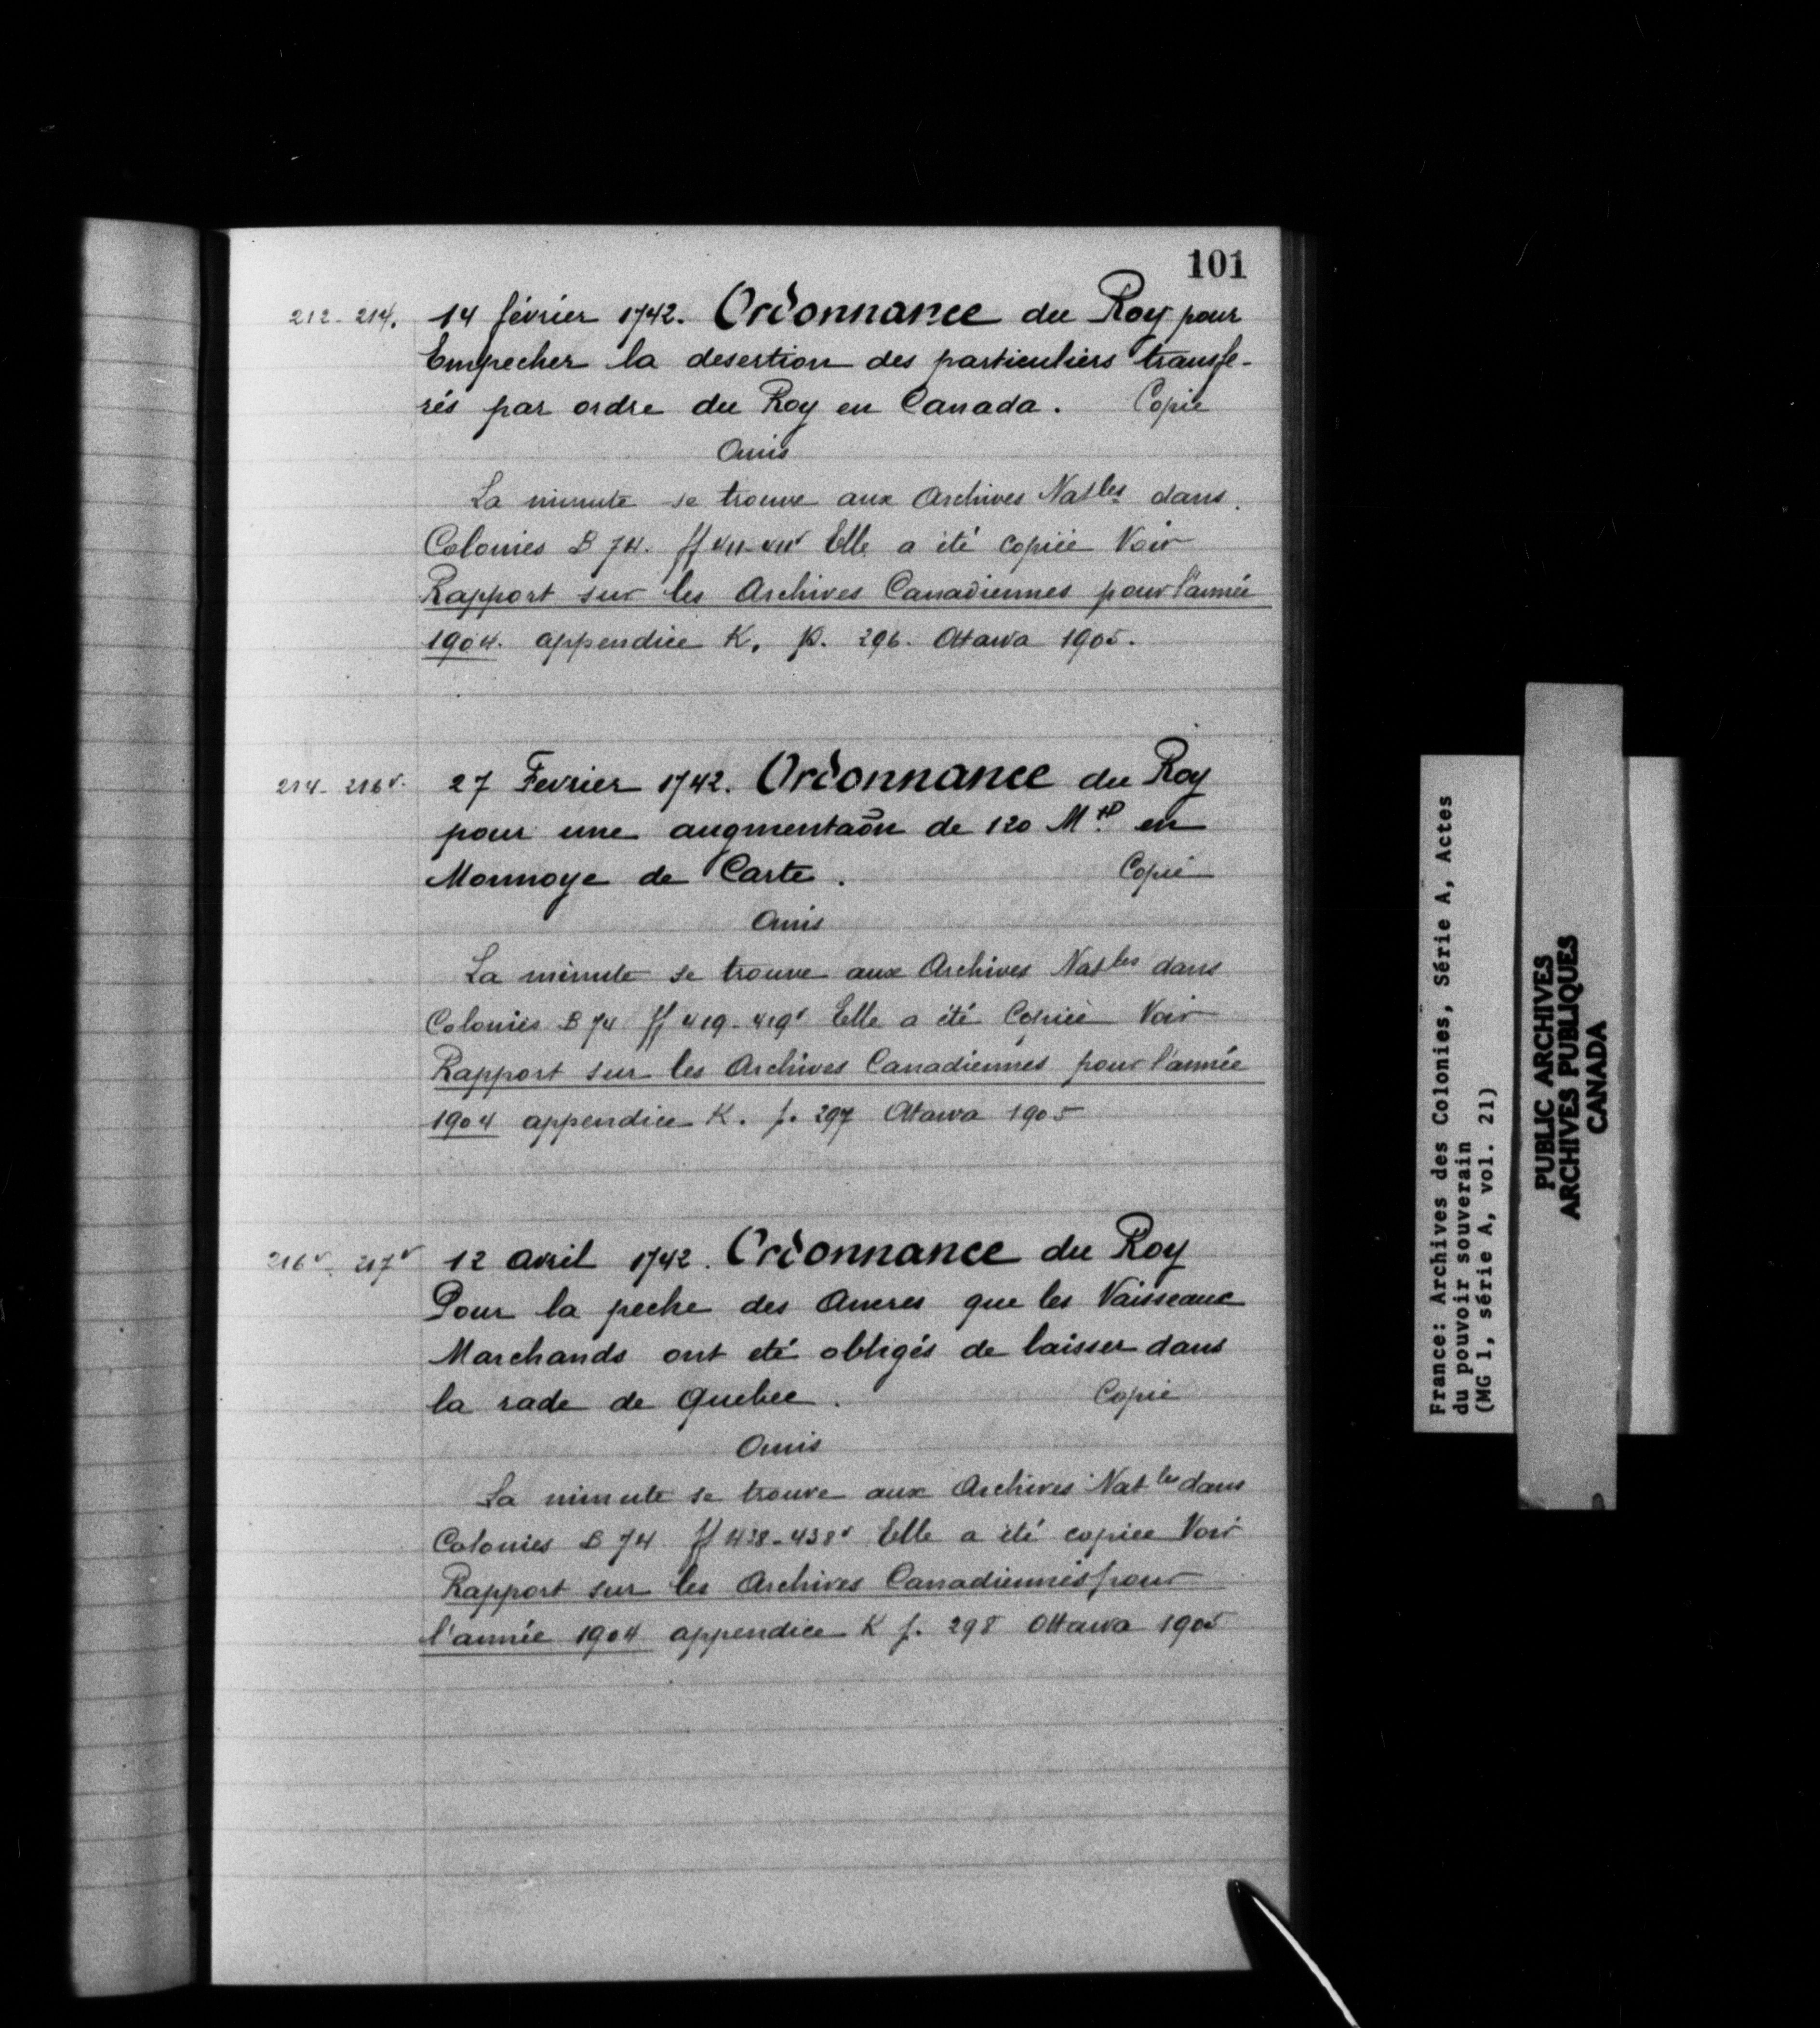 101
212-214. 14 février 1742. Ordonnance du Roy pour
Empecher la desertion des particuliers transfe-
rés par ordre du Roy en Canada. Copie
Omis
La minute se trouve aux Archives Natles dans
Colonies B 74. ff 411-411v Elle a été copiée Voir
Rapport sur les Archives Canadiennes pour l'année
1904. appendice K, p. 296. Ottawa 1905.
214-216v. 27 Fevrier 1742. Ordonnance du Roy
pour une augmentaõn de 120 M.tt en
Monnoye de Carte. Copié
Omis
La minute se trouve aux Archives Natles dans
Colonies B 74 ff 419-419v Elle a été Copiée Voir
Rapport sur les Archives Canadiennes pour l'année
1904 appendice K. p. 297 Ottawa 1905
216v-217v 12 avril 1742. Ordonnance du Roy
Pour la peche des Ancres que les Vaisseaux
Marchands ont eté obligés de laisser dans
la rade de Quebec. Copié
Omis
La minute se trouve aux Archives Natles dans
Colonies B 74 ff 438-438v Elle a été copiée Voir
Rapport sur les Archives Canadiennes pour
l'année 1904 appendice K p. 298 Ottawa 1905
France: Archives des Colonies, Série A, Actes
du pouvoir souverain
(MG 1, série A, vol. 21)
PUBLIC ARCHIVES
ARCHIVES PUBLIQUES
CANADA